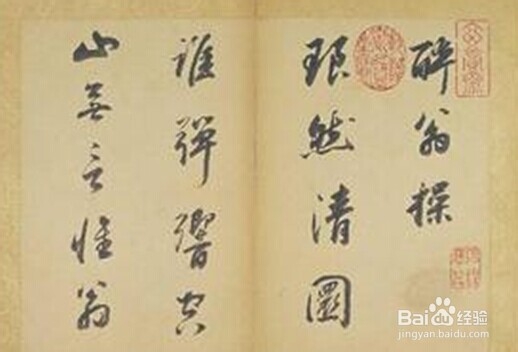 醉翁操
琅然清圜
誰彈響空
山無言惟翁
Baidu经验
jingyan.baidu.com